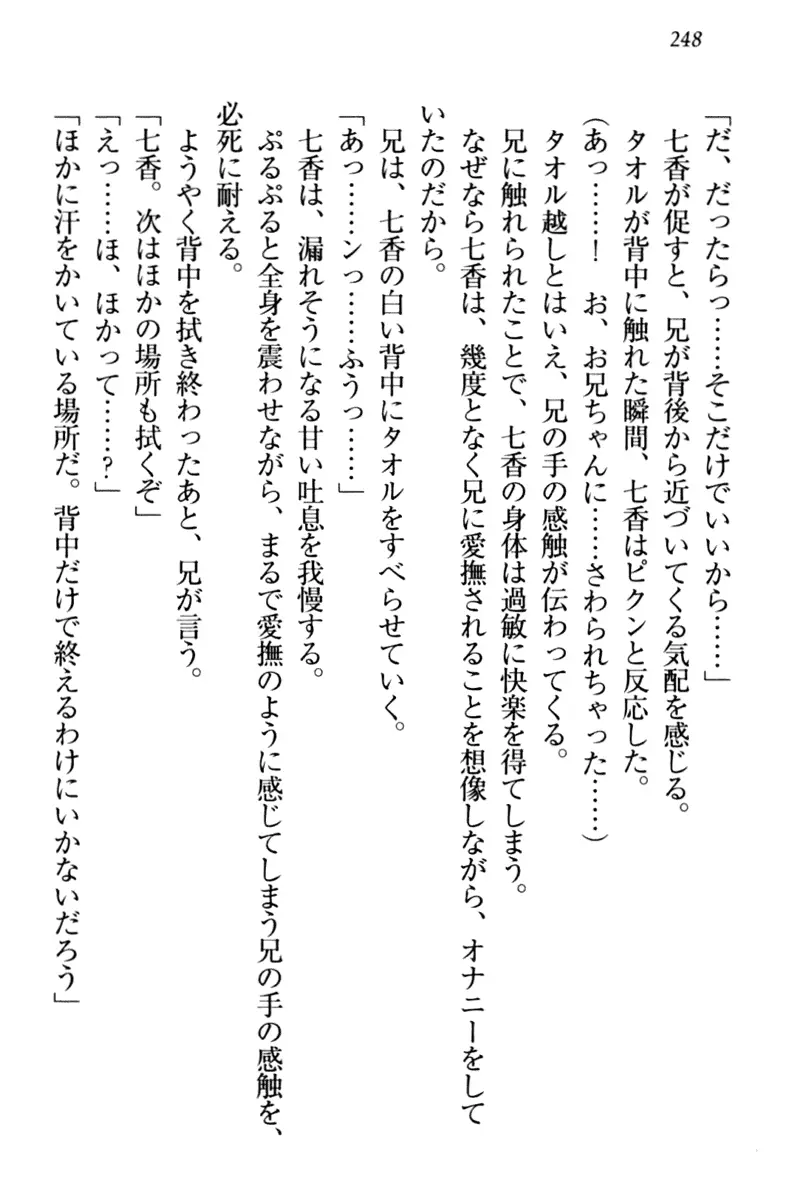 248
「だ、だったらっ……そこだけでいいから……」
七香が促すと、兄が背後から近づいてくる気配を感じる。
タオルが背中に触れた瞬間、七香はピクンと反応した。
（あっ……！　お、お兄ちゃんに……さわられちゃった……）
タオル越しとはいえ、兄の手の感触が伝わってくる。
兄に触れられたことで、七香の身体は過敏に快楽を得てしまう。
なぜなら七香は、幾度となく兄に愛撫されることを想像しながら、オナニーをして
いたのだから。
兄は、七香の白い背中にタオルをすべらせていく。
「あっ……ンっ……ふうっ……」
七香は、漏れそうになる甘い吐息を我慢する。
ぷるぷると全身を震わせながら、まるで愛撫のように感じてしまう兄の手の感触を、
必死に耐える。
ようやく背中を拭き終わったあと、兄が言う。
「七香。次はほかの場所も拭くぞ」
「えっ……ほ、ほかって……？」
「ほかに汗をかいている場所だ。背中だけで終えるわけにいかないだろう」